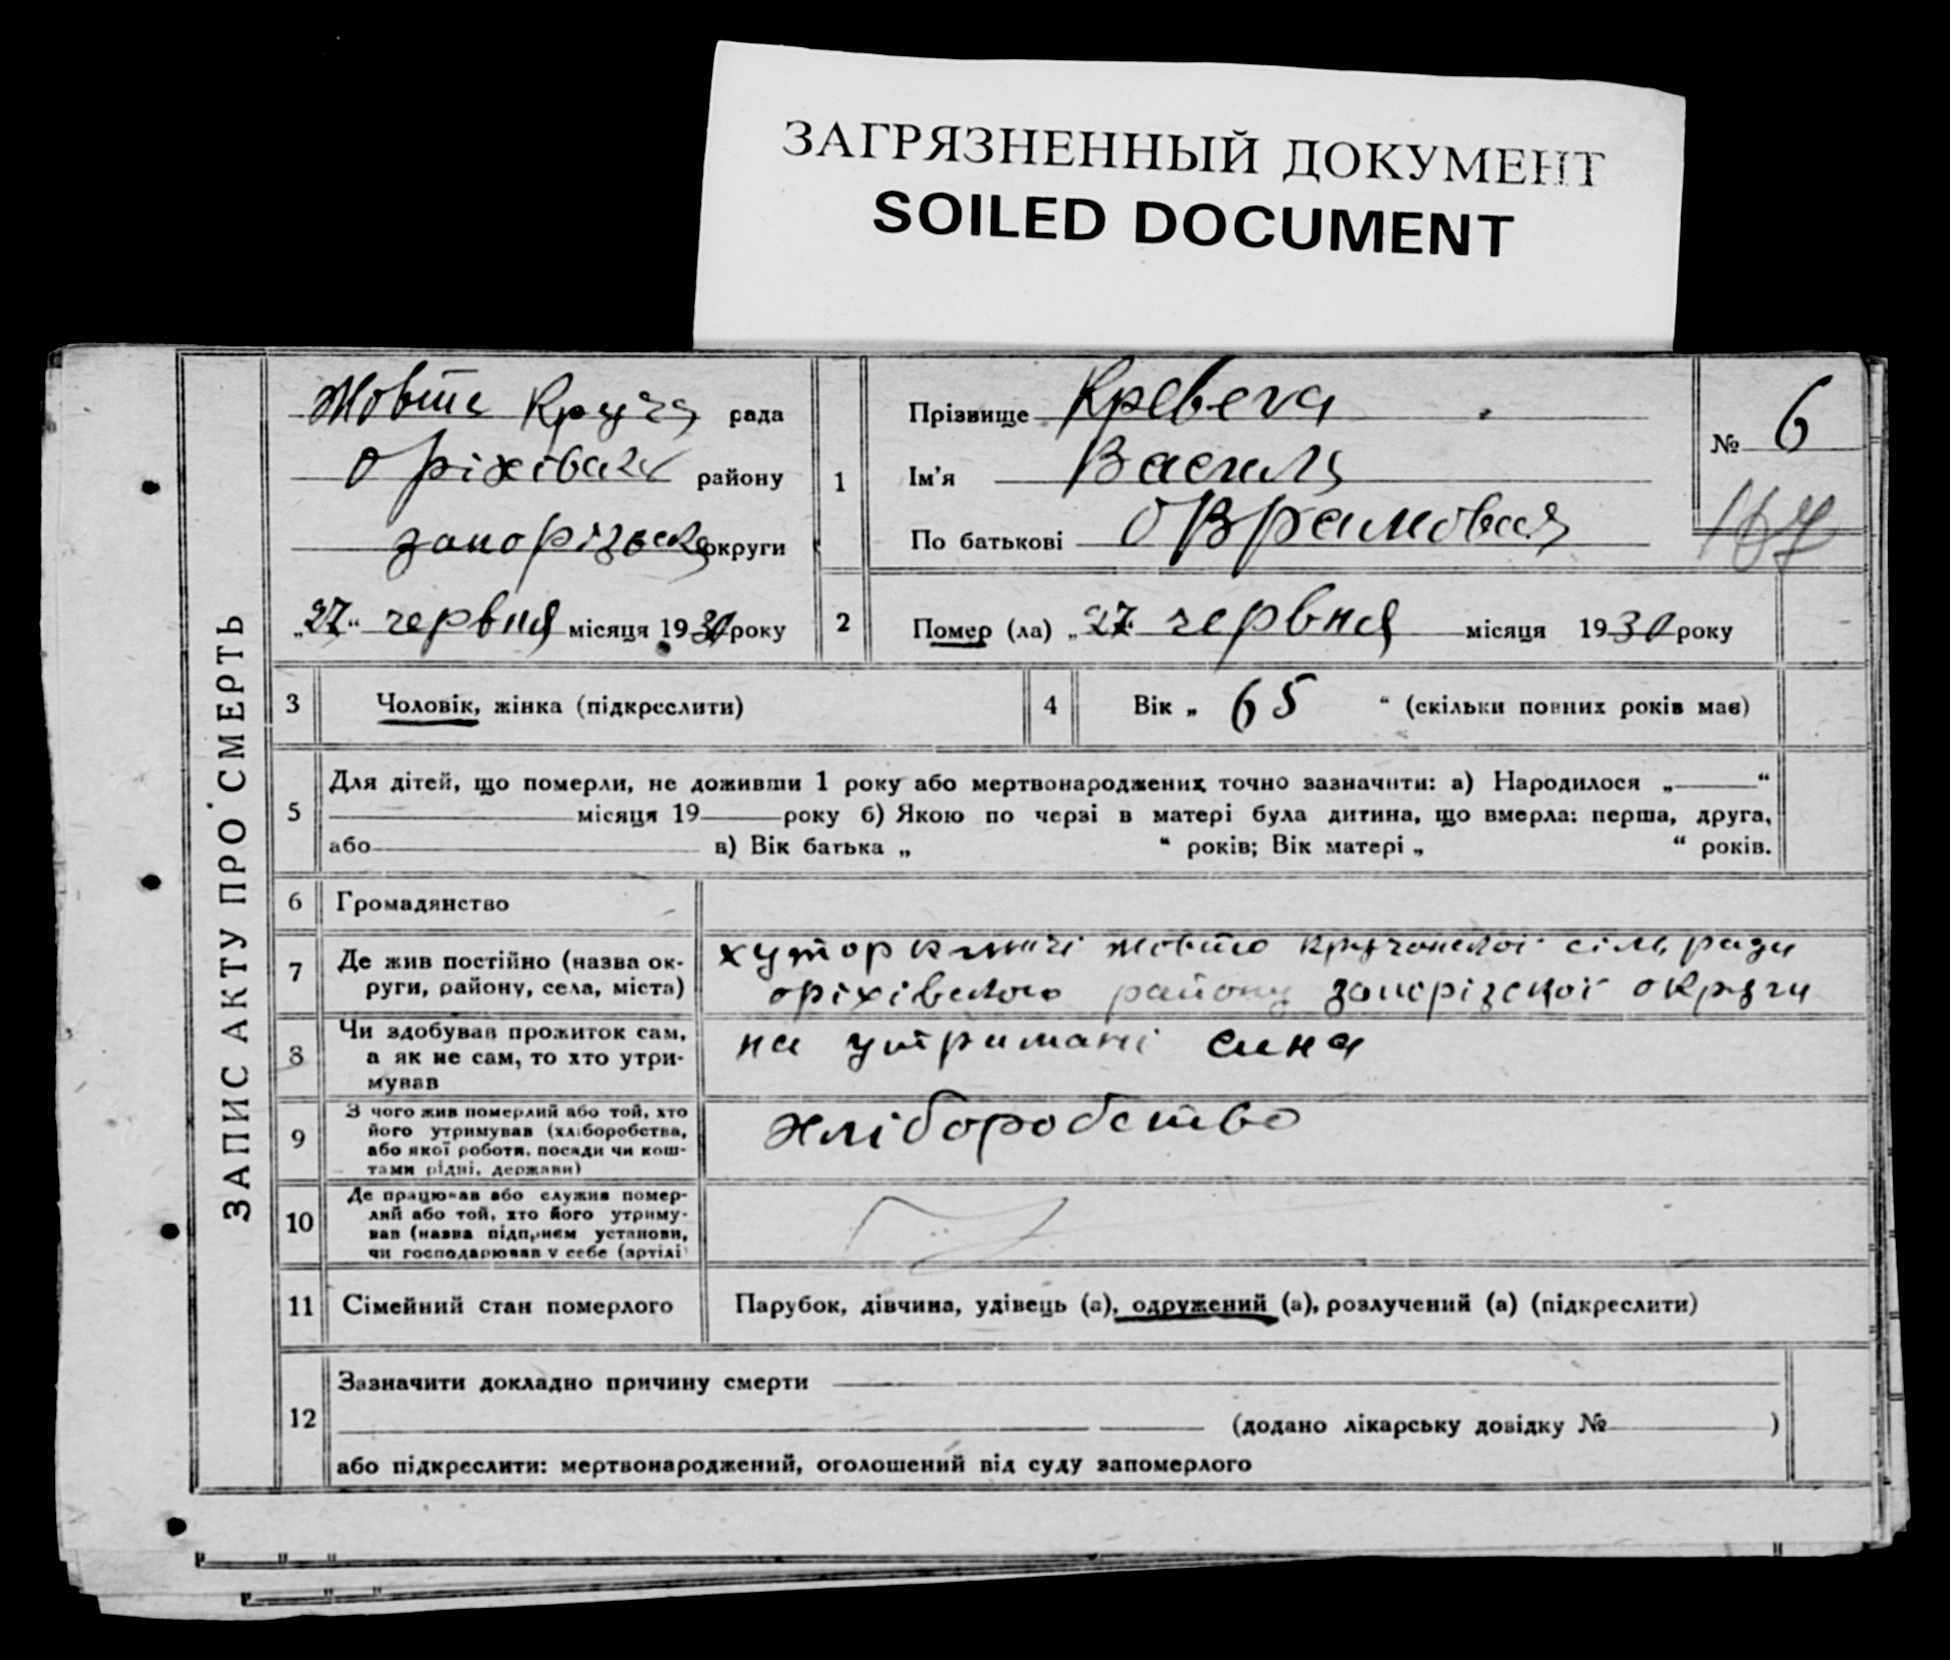 ЗАГРЯЗНЕННЫЙ ДОКУМЕНТ
SOILED DOCUMENT
ЗАПИС АКТУ ПРО СМЕРТЬ
Жовте Круча рада
Оріхівськ району
запорізьк округи
„27“ червня місяця 1930 року
1
Прізвище Кревега
Ім'я Василь
По батькові
№ 6
167
2
Помер (ла) „27 червня місяця 1930 року
3 Чоловік, жінка (підкреслити)
4 Вік „ 65 “ (скільки повних років має)
5
Для дітей, що померли, не доживши 1 року або мертвонароджених точно зазначити: а) Народилося „ “
місяця 19 року б) Якою по черзі в матері була дитина, що вмерла: перша, друга,
або в) Вік батька „ “ років; Вік матері „ “ років.
6 Громадянство
7 Де жив постійно (назва ок-
руги, району, села, міста)
хутор жовто сіль ради
оріхівського району запорізської округи
8 Чи здобував прожиток сам,
а як не сам, то хто утри-
мував
на утримані сина
9 З чого жив померлий або той, хто
його утримував (хліборобства,
або якої роботи, посади чи кош-
тами рідні, держави)
хліборобство
10 Де працював або служив помер-
лий або той, хто його утриму-
вав (назва підприєм установи,
чи господарював у себе (артілі
11 Сімейний стан померлого
Парубок, дівчина, удівець (а), одружений (а), розлучений (а) (підкреслити)
12
Зазначити докладно причину смерти
(додано лікарську довідку № )
або підкреслити: мертвонароджений, оголошений від суду запомерлого